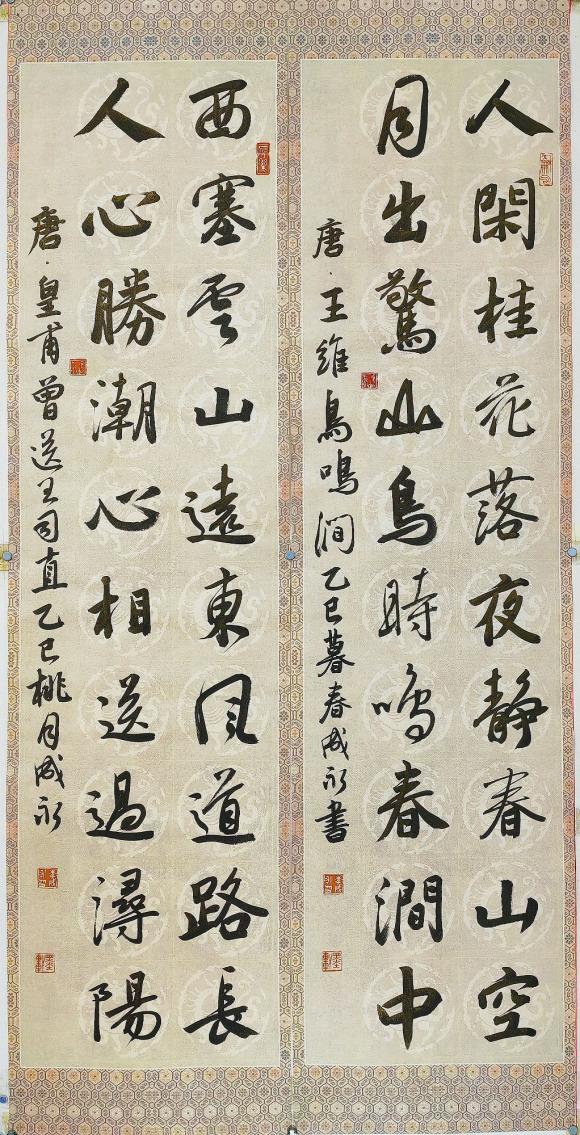 人閑桂花落夜静春山空
月出驚山鳥時鳴春澗中
唐·王維鳥鳴涧乙巳暮春成永書
西塞雲山遠東風道路長
人心勝潮心相送過潯陽
唐·皇甫曾送王司直乙巳桃月成永